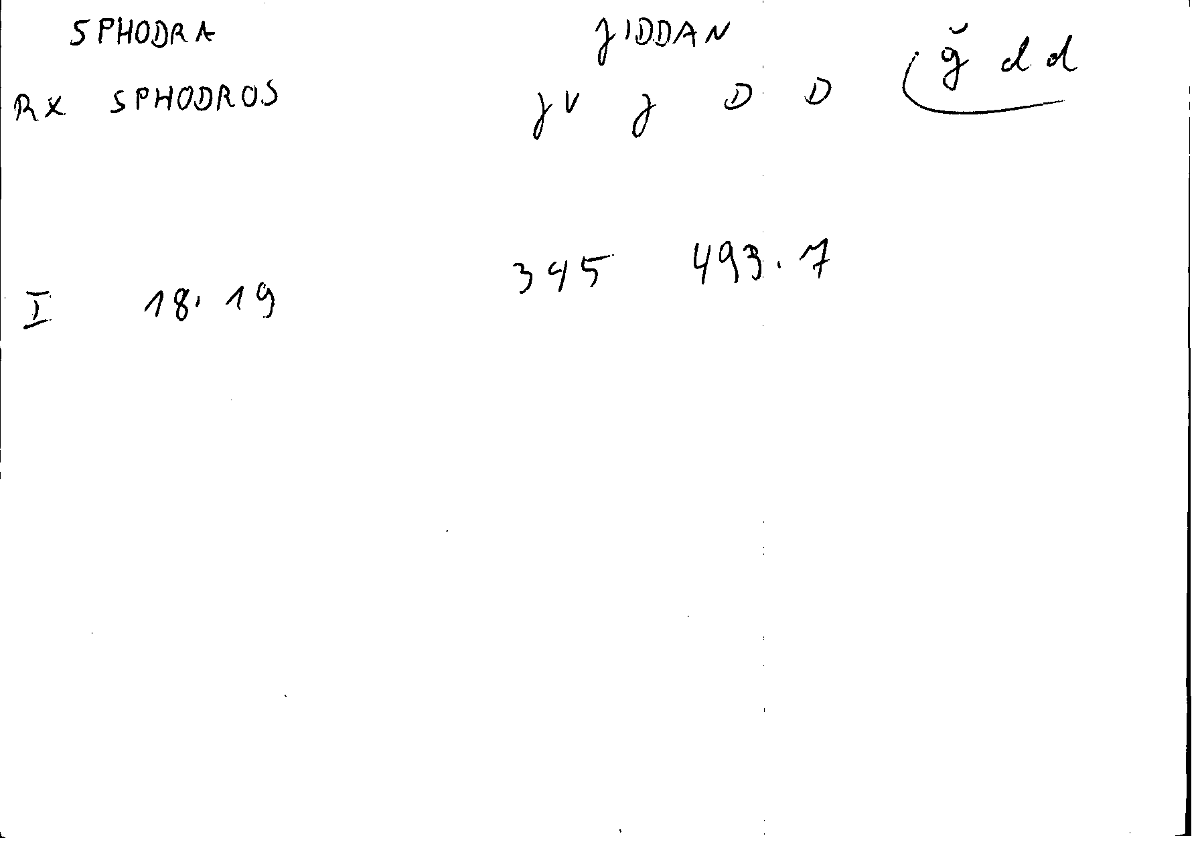 SPHODRA JIDDAN
RX SPHODROS JV J D D ğ d d
I 18.19 345 493.7